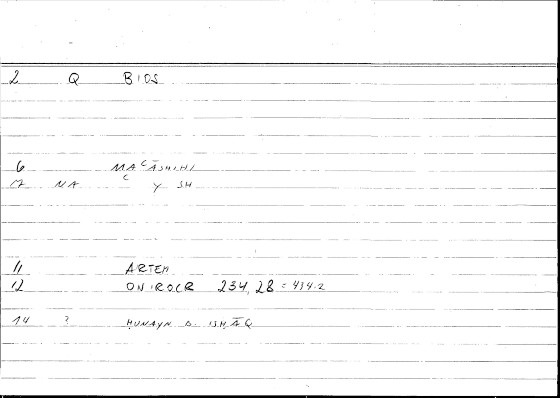 2 Q BIOS
6 MAʿĀSHIHI
17 NA ʿ Y SH
11 ARTEM
12 ONIROCR 234, 28 = 434.2
14 ? ḤUNAYN B. ISḤĀQ